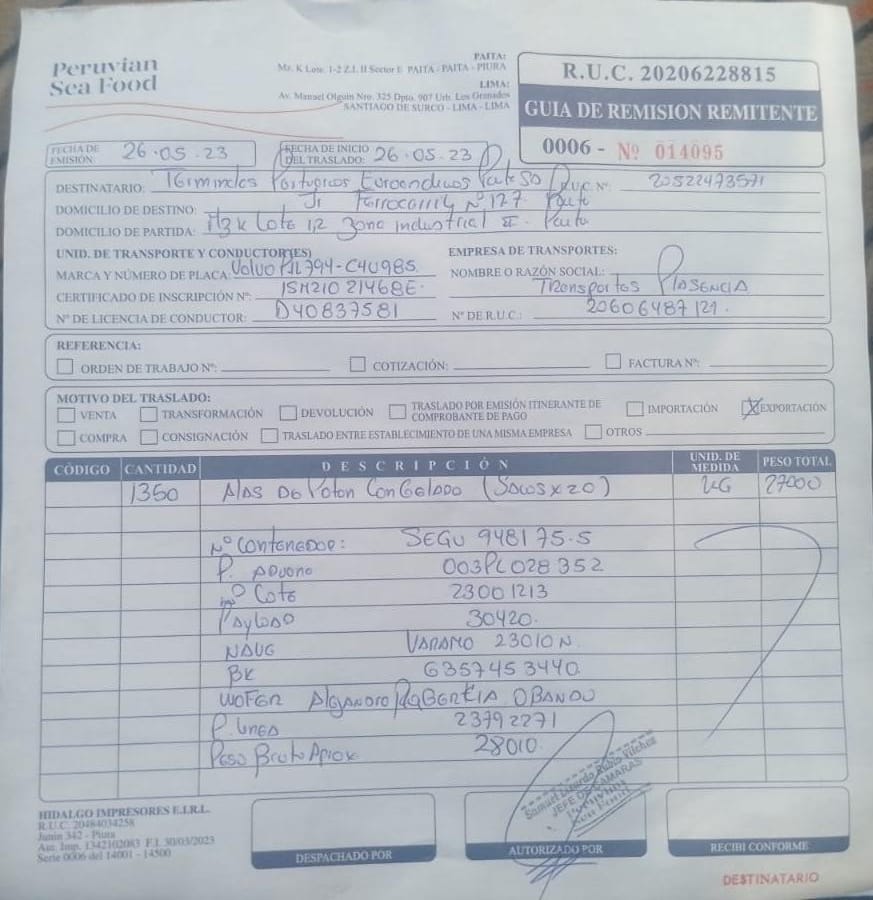 Peruvian
Sea Food
PAITA:
Mz. K Lote. 1-2 Z.I. II Sector E PAITA - PAITA - PIURA
LIMA:
Av. Manuel Olguin Nro. 325 Dpto. 907 Urb. Los Granados
SANTIAGO DE SURCO - LIMA - LIMA
R.U.C. 20206228815
GUIA DE REMISION REMITENTE
0006 - Nº 014095
FECHA DE EMISIÓN: 26.05.23
FECHA DE INICIO DEL TRASLADO: 26.05.23
DESTINATARIO: Terminales Portuarios Euroandinos Paita SA R.U.C. Nº: 20522473571
DOMICILIO DE DESTINO: Jr Ferrocarril Nº 127 Paita
DOMICILIO DE PARTIDA: Mz K Lote 1,2 Zona Industrial II Paita
UNID. DE TRANSPORTE Y CONDUCTOR(ES)
EMPRESA DE TRANSPORTES:
MARCA Y NÚMERO DE PLACA: Volvo -C4U985
NOMBRE O RAZÓN SOCIAL: Transportes Plasencia
CERTIFICADO DE INSCRIPCIÓN Nº: 15M21021468E.
Nº DE LICENCIA DE CONDUCTOR: D40837581
Nº DE R.U.C.: 20606487121.
REFERENCIA:
ORDEN DE TRABAJO Nº: COTIZACIÓN: FACTURA Nº:
MOTIVO DEL TRASLADO:
VENTA TRANSFORMACIÓN DEVOLUCIÓN TRASLADO POR EMISIÓN ITINERANTE DE COMPROBANTE DE PAGO IMPORTACIÓN X EXPORTACIÓN
COMPRA CONSIGNACIÓN TRASLADO ENTRE ESTABLECIMIENTO DE UNA MISMA EMPRESA OTROS
CÓDIGO CANTIDAD DESCRIPCIÓN UNID. DE MEDIDA PESO TOTAL
1350 Alas De Poton Congelado (Sacos x 20) KG 27000
Nº Contenedor: SEGU 948175-5
P. Aduana 003PL028352
Nº Lote 23001213
Payload 30420.
Nave VARAMO 23010N
BK 6357453440
P. Linea 23792271
Peso Bruto Aprox 28010.
Samuel Rubio Vilchez
JEFE DE CAMARAS
Peruvian
Sea Food
HIDALGO IMPRESORES E.I.R.L.
R.U.C. 20484034258
Junin 342 - Piura
Aut. Imp. 1342102083 F.I. 30/03/2023
Serie 0006 del 14001 - 14500
DESPACHADO POR
AUTORIZADO POR
RECIBI CONFORME
DESTINATARIO